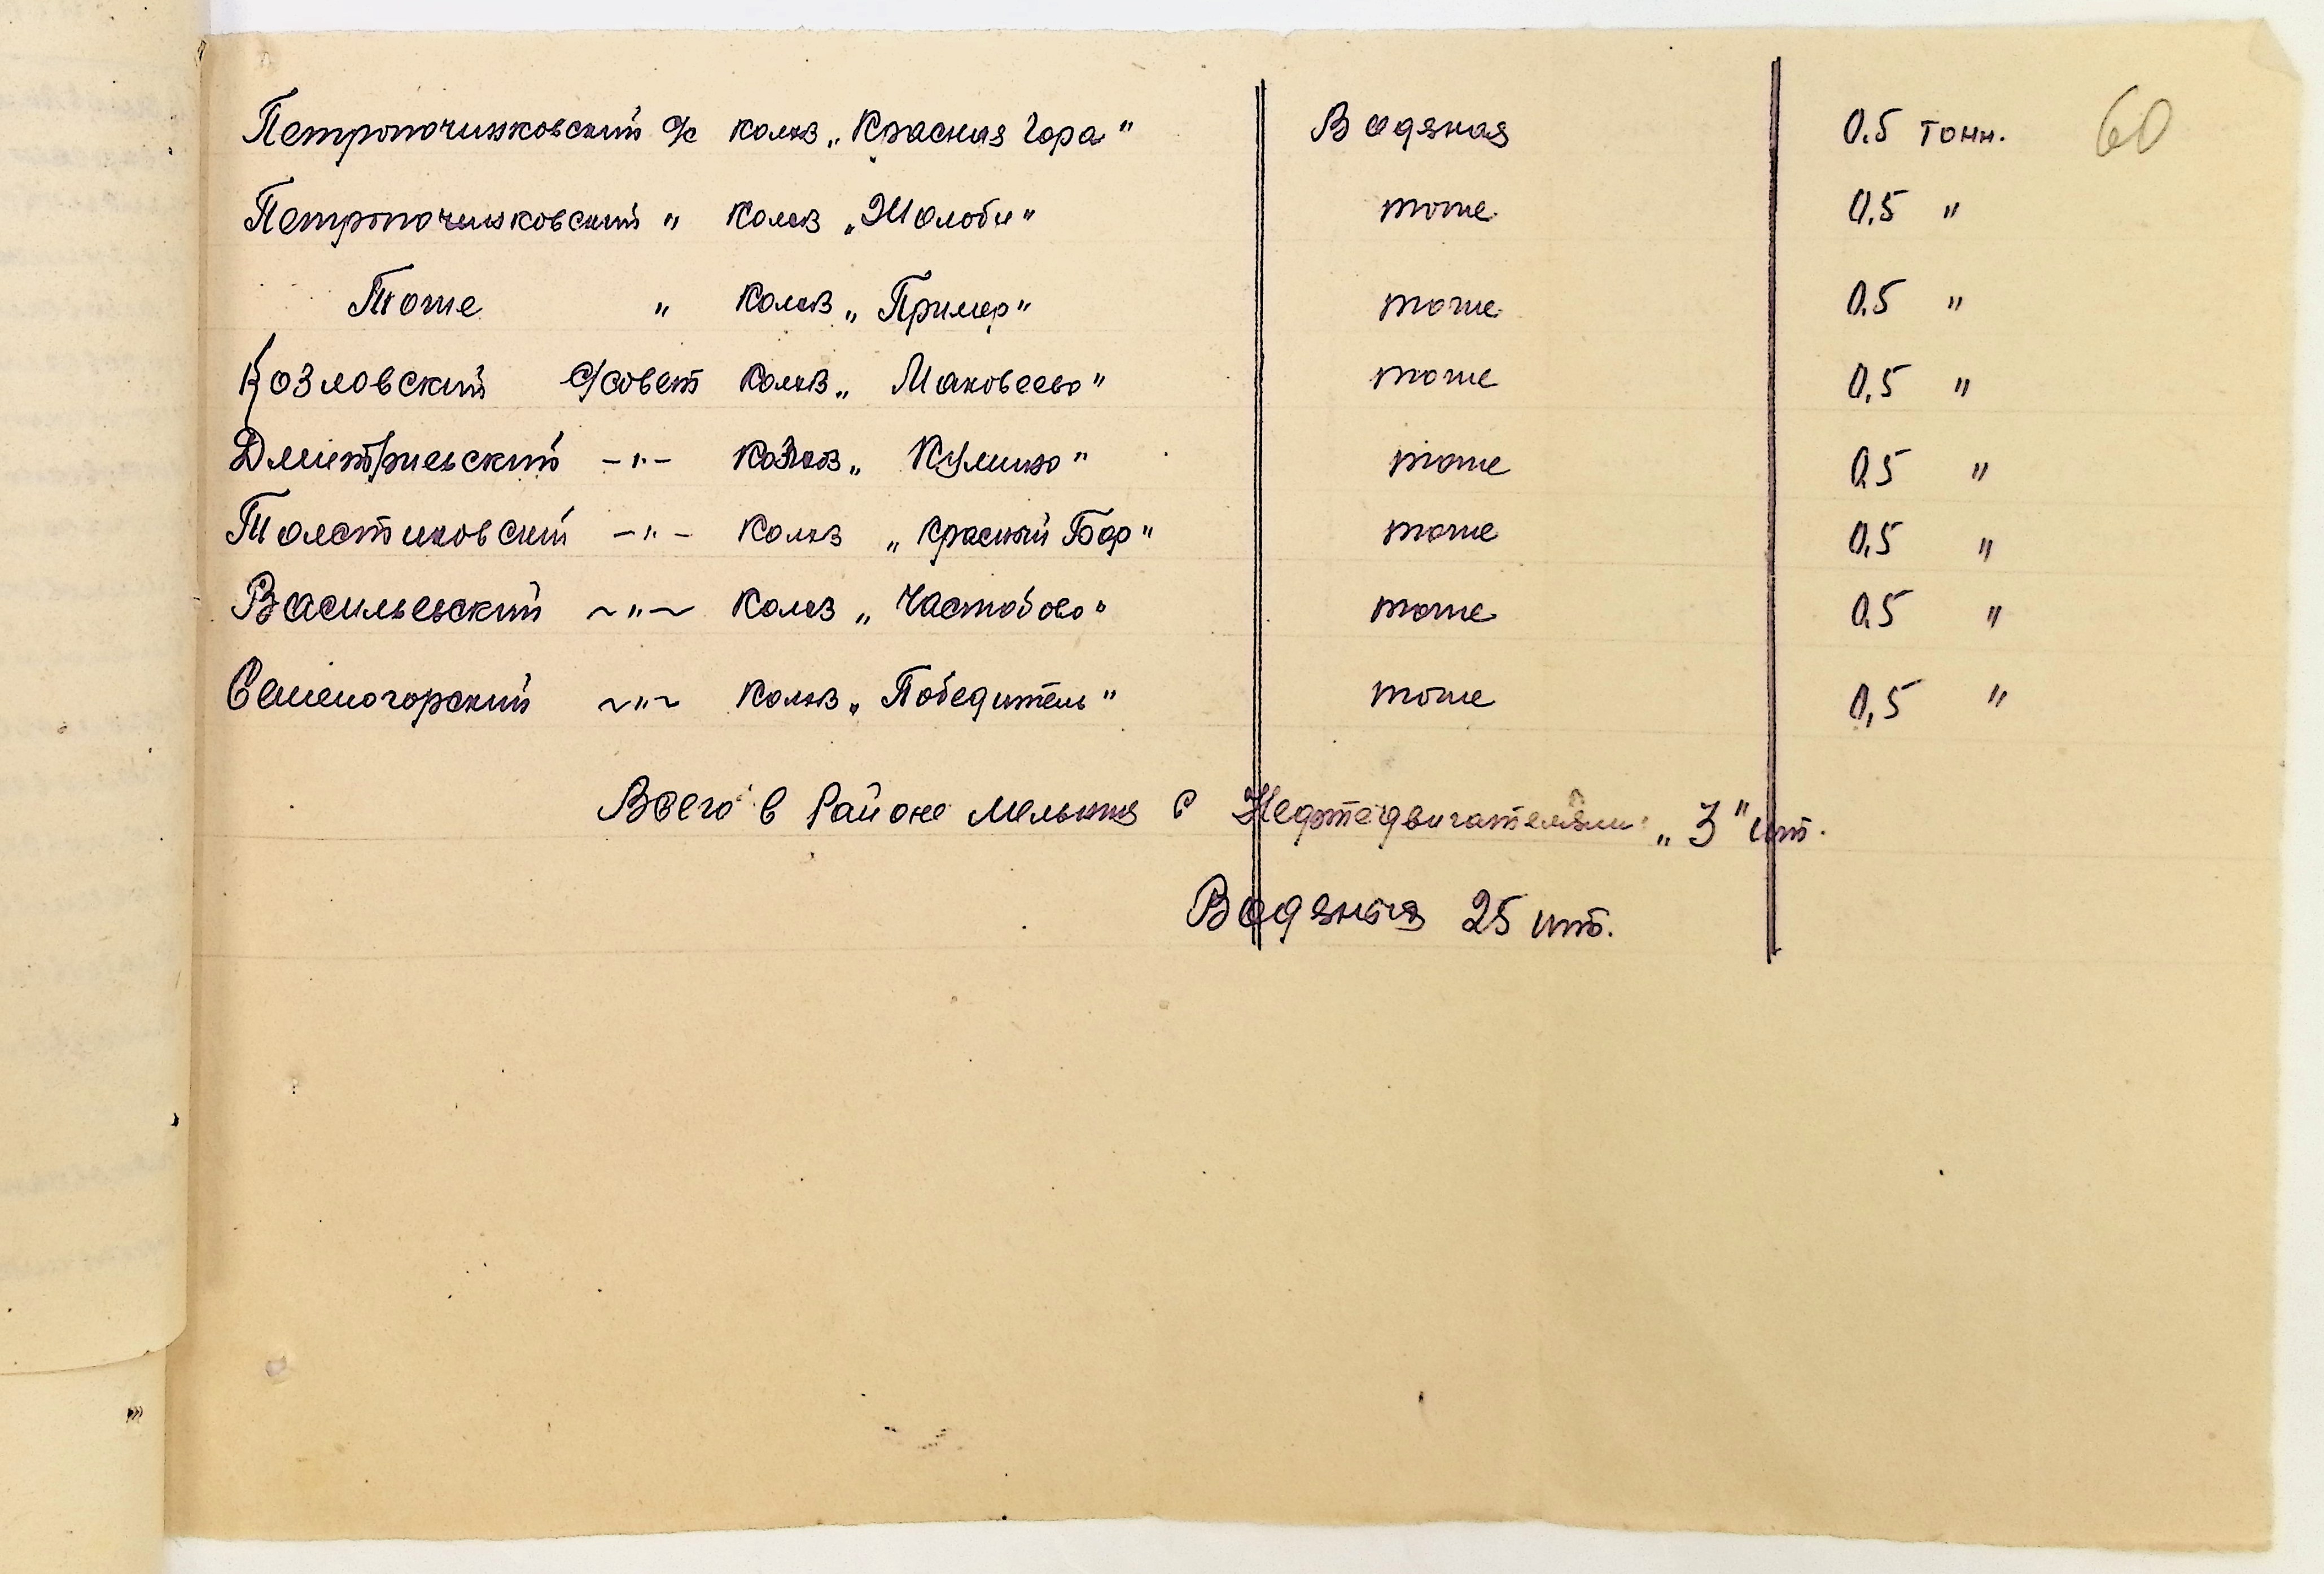 Петропочинковский с/с колхз „Красная Гора" Водяная 0.5 тонн. 60
Петропочинковский " колхз „Жолоби" тоже 0,5 "
Тоже " колхз „Пример" тоже 0.5 "
Козловский с/совет колхз „Маковеево" тоже 0,5 "
Дмитриевский -"- колхз „Кулиико" тоже 0,5 "
Толстиковский -"- колхз „Красный Бор" тоже 0,5 "
Васильевский ~"~ колхз „Частобово" тоже 0.5 "
Семеногорский ~"~ колхз „Победитель" тоже 0,5 "
Всего в Районе мельниц с Нефтедвигателями „3" шт.
Водяных 25 шт.